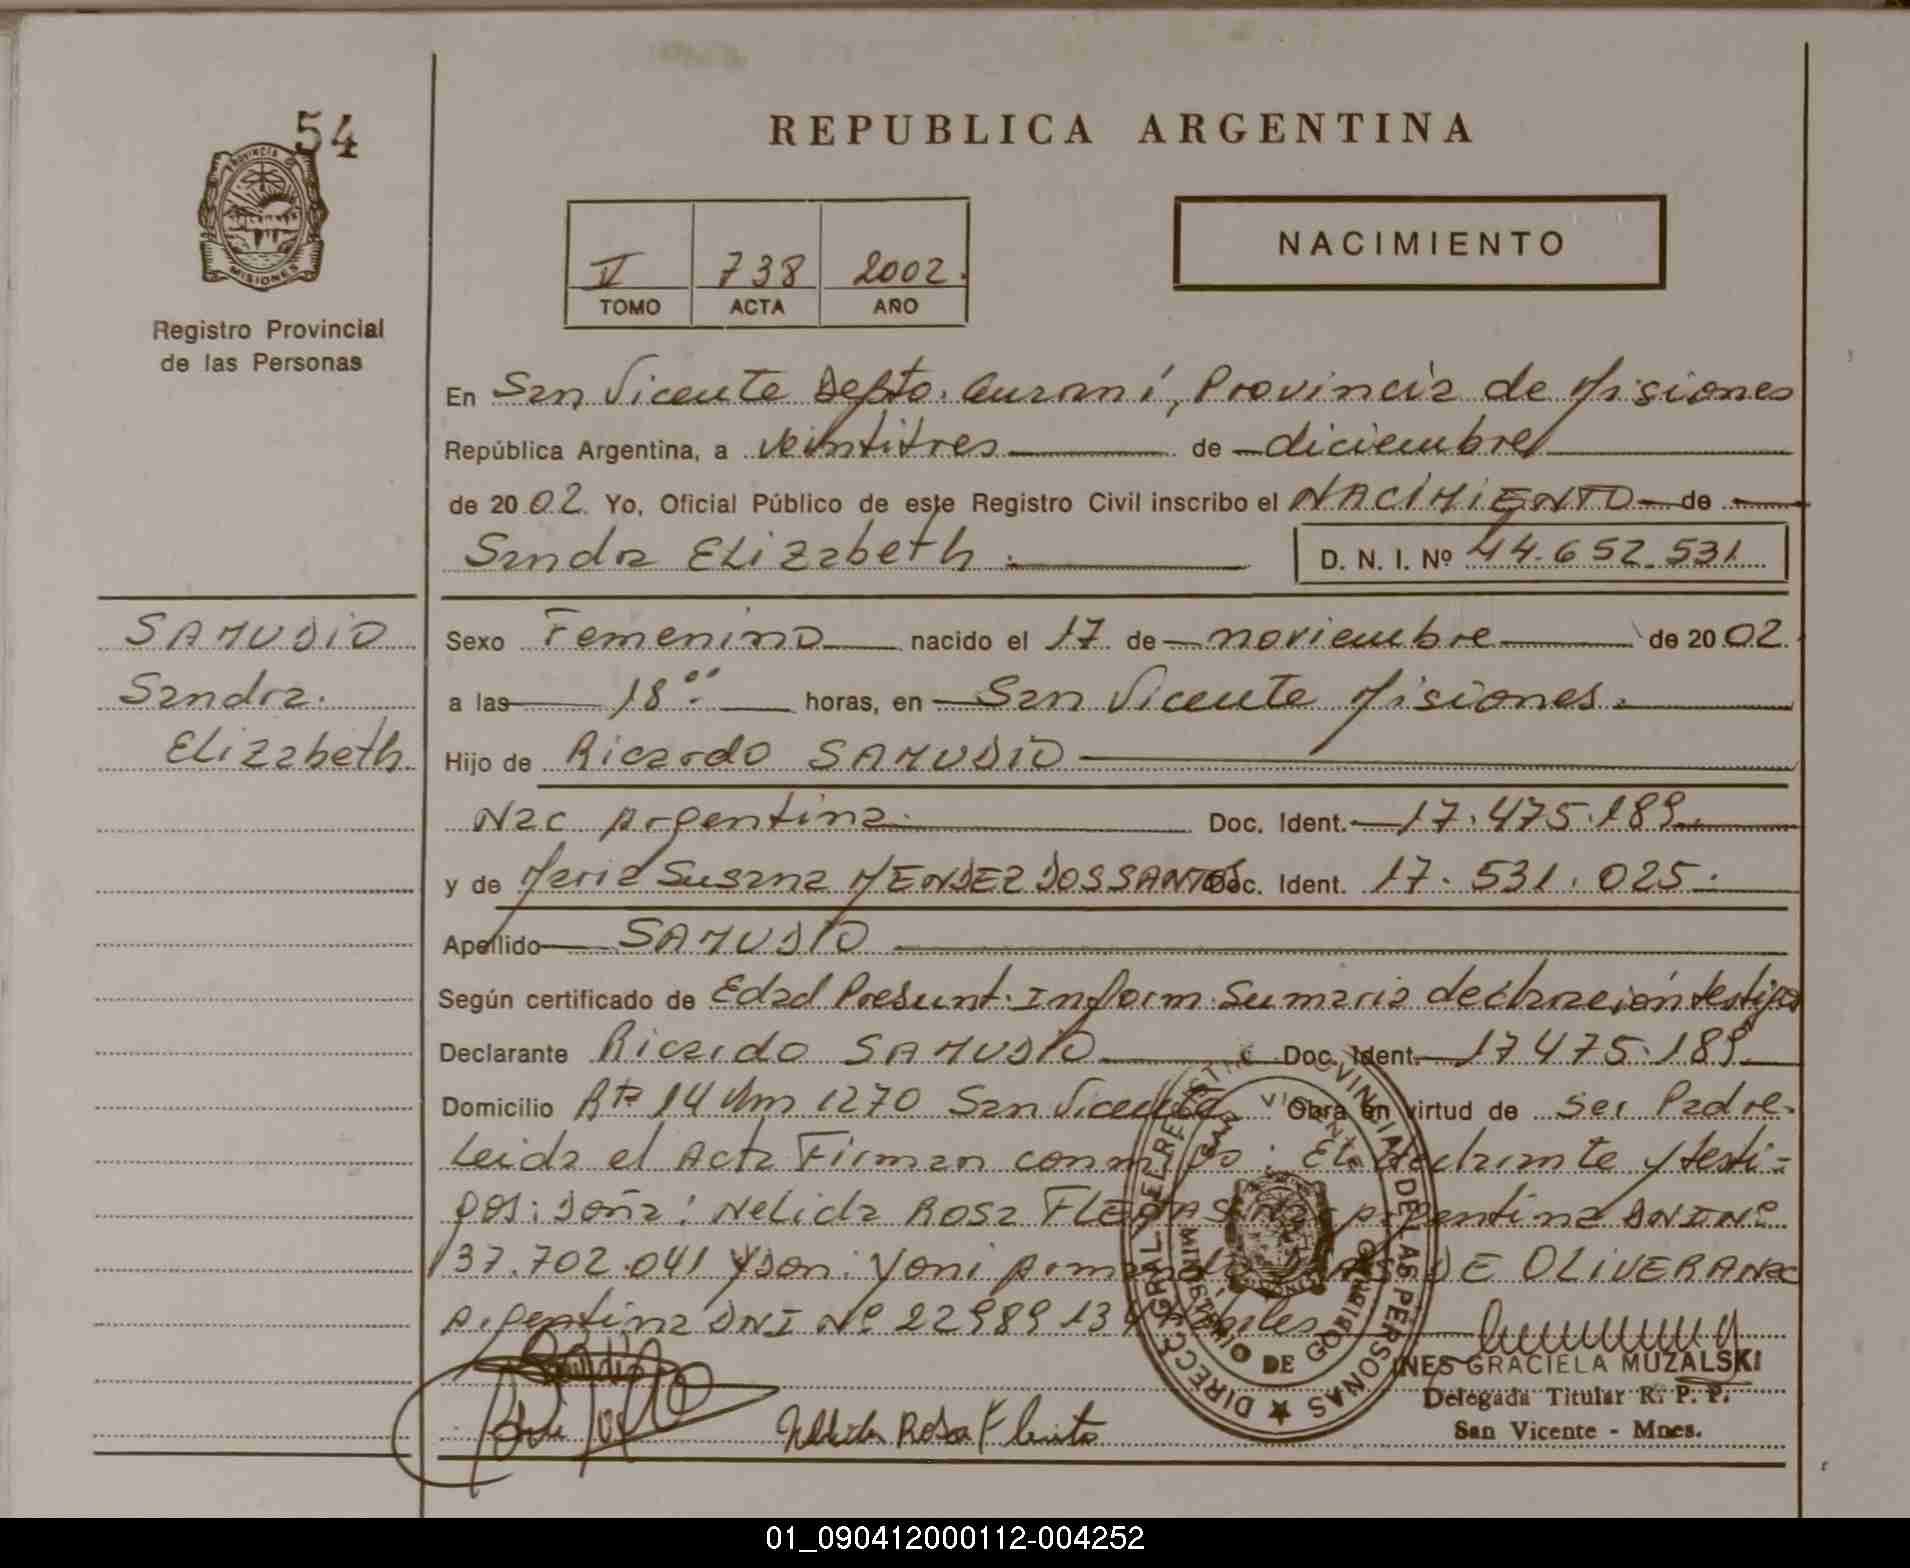 54
PROVINCIA DE
MISIONES
Registro Provincial
de las Personas
REPUBLICA ARGENTINA
V 738 2002.
TOMO ACTA AÑO
NACIMIENTO
En San Vicente Depto. Guaraní, Provincia de Misiones
República Argentina, a veintitres de diciembre
de 2002. Yo, Oficial Público de este Registro Civil inscribo el NACIMIENTO de
Sandra ELizabeth.
D. N. I. Nº 44.652.531
SAMUDIO
Sandra.
ELizabeth
Sexo Femenino nacido el 17 de noviembre de 2002.
a las 18ºº horas, en San Vicente Misiones.
Hijo de Ricardo SAMUDIO
Nac Argentina. Doc. Ident. 17.475.189.
y de Maria Susana MENDEZ DOS SANTOS Doc. Ident. 17.531.025.
Apellido SAMUDIO
Según certificado de Edad Presunt. Inform. Sumaria declaración testigos
Declarante Ricardo SAMUDIO Doc. Ident. 17475.189
Domicilio Rta 14 Km 1270 San Vicente Obra en virtud de ser Padre.
Leida el Acta Firman conmigo: EL declarante y testi-
gos: Doña: Nelida Rosa Argentina DNI Nº
37.702.041 y Don: Yoni DE OLIVERA Nac
Argentina DNI Nº 22989134 habiles
DIRECC. GRAL. DEL REGISTRO PROVINCIAL DE LAS PERSONAS
SAN VICENTE
MINISTERIO DE GOBIERNO
INES GRACIELA MUZALSKI
Delegada Titular R. P. P.
San Vicente - Mnes.
01_090412000112-004252